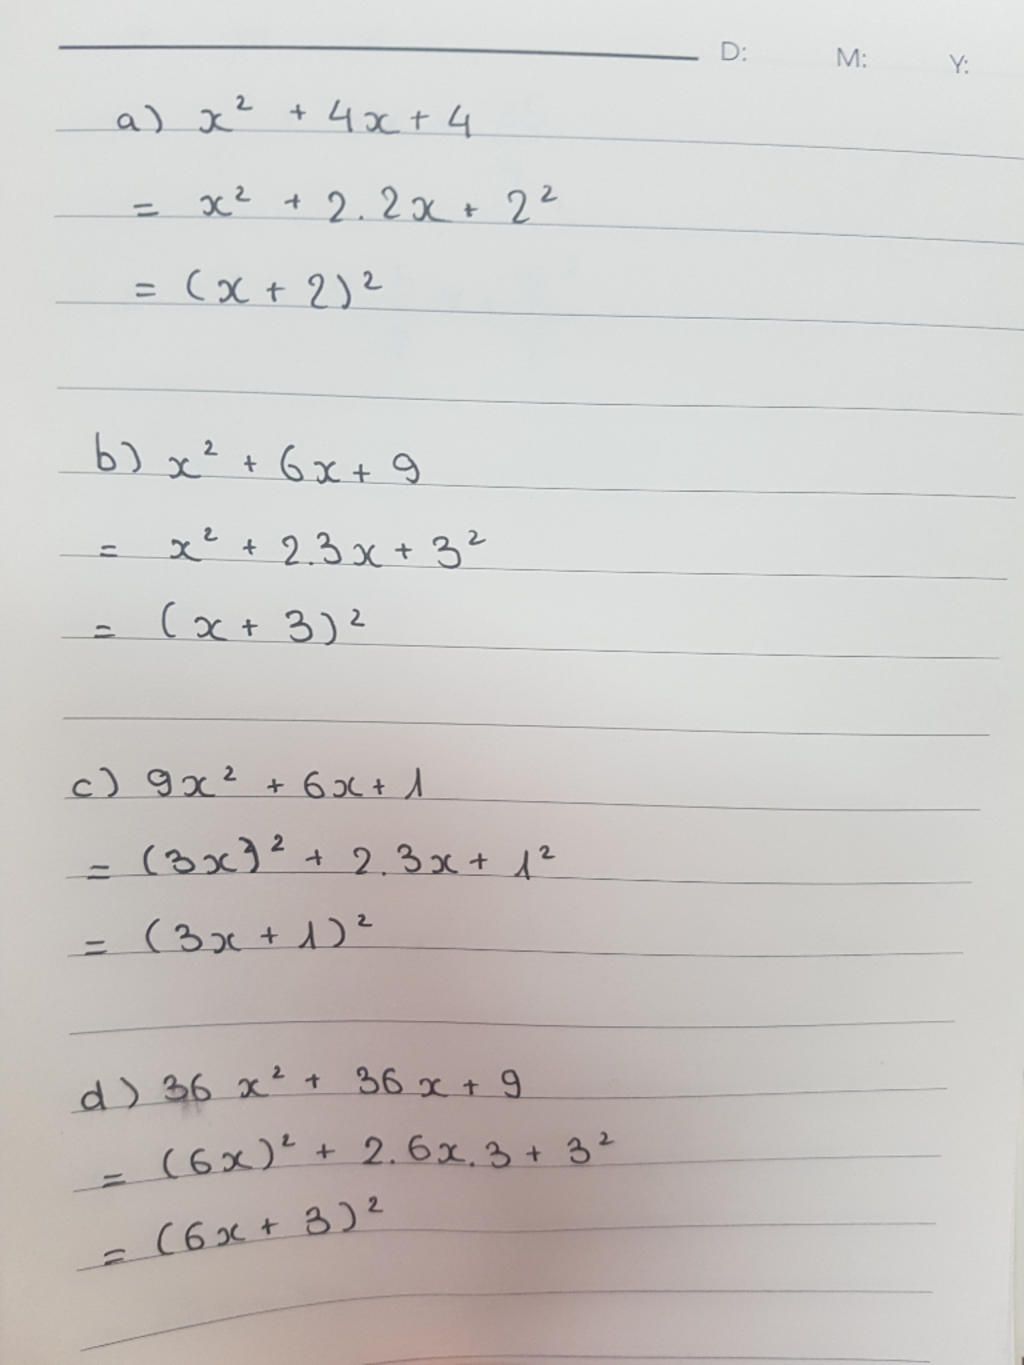 D: M: Y:
a) x² + 4x + 4
= x² + 2.2x + 2²
= (x + 2)²
b) x² + 6x + 9
= x² + 2.3x + 3²
= (x + 3)²
c) 9x² + 6x + 1
= (3x)² + 2.3x + 1²
= (3x + 1)²
d) 36x² + 36x + 9
= (6x)² + 2.6x.3 + 3²
= (6x + 3)²